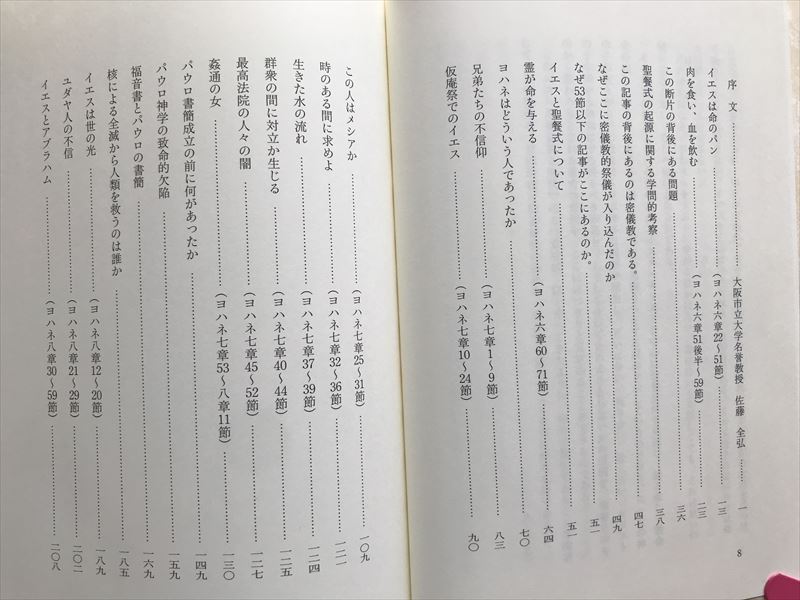 序文……………………大阪市立大学名誉教授　佐藤　全弘……一
イエスは命のパン……………………（ヨハネ六章22～51節）……………………一三
肉を食い、血を飲む……………………（ヨハネ六章51後半～59節）……………………二三
この断片の背後にある問題……………………三六
聖餐式の起源に関する学問的考察……………………三八
この記事の背後にあるのは密儀教である。……………………四七
なぜここに密儀教的祭儀が入り込んだのか……………………四九
なぜ53節以下の記事がここにあるのか。……………………五一
イエスと聖餐式について……………………五一
霊が命を与える……………………（ヨハネ六章60～71節）……………………六四
ヨハネはどういう人であったか……………………七〇
兄弟たちの不信仰……………………（ヨハネ七章1～9節）……………………八三
仮庵祭でのイエス……………………（ヨハネ七章10～24節）……………………九〇
8
この人はメシアか……………………（ヨハネ七章25～31節）……………………一〇九
時のある間に求めよ……………………（ヨハネ七章32～36節）……………………一二一
生きた水の流れ……………………（ヨハネ七章37～39節）……………………一二四
群衆の間に対立か生じる……………………（ヨハネ七章40～44節）……………………一二五
最高法院の人々の闇……………………（ヨハネ七章45～52節）……………………一二七
姦通の女……………………（ヨハネ七章53～八章11節）……………………一三〇
パウロ書簡成立の前に何があったか……………………一四九
パウロ神学の致命的欠陥……………………一五九
福音書とパウロの書簡……………………一六九
核による全滅から人類を救うのは誰か……………………一八五
イエスは世の光……………………（ヨハネ八章12～20節）……………………一八九
ユダヤ人の不信……………………（ヨハネ八章21～29節）……………………二〇二
イエスとアブラハム……………………（ヨハネ八章30～59節）……………………二〇八